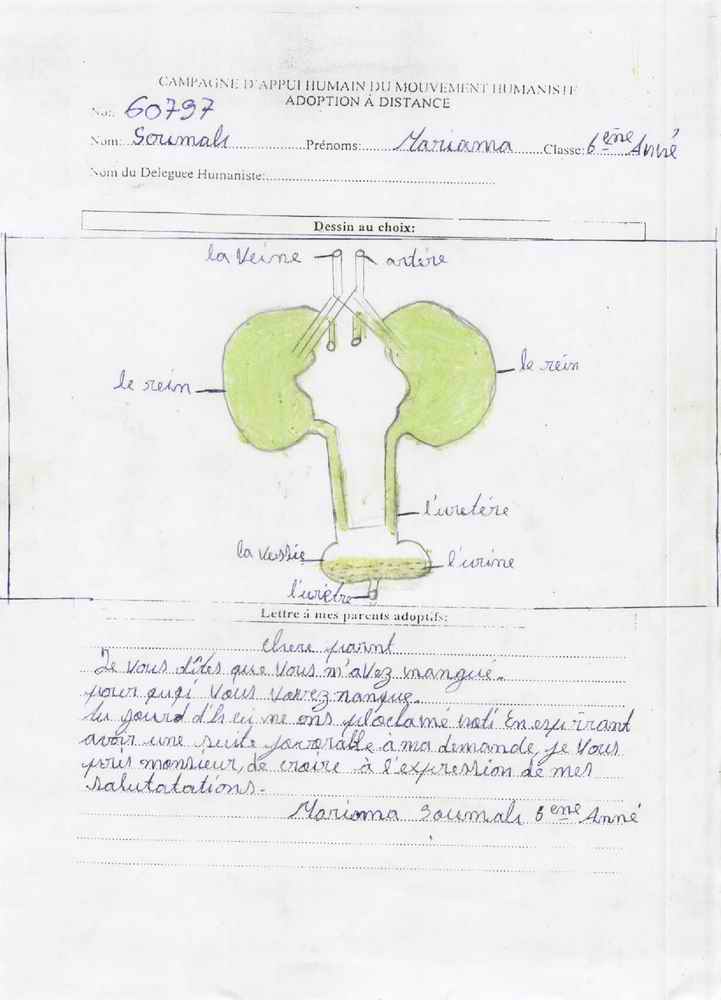 CAMPAGNE D'APPUI HUMAIN DU MOUVEMENT HUMANISTE
ADOPTION À DISTANCE
No: 60797
Nom: Soumah Prénoms: Mariama Classe: 6ème Anné
Nom du Deleguee Humaniste:
Dessin au choix:
la Veine artère
le rein le rein
l'uretère
la vessie l'urine
l'urètre
Lettre à mes parents adoptifs:
chere parnt
Je vous dîtes que vous m'avez mangué.
pour quoi vous
ne ons En espirant
avoir une suite favorable à ma demande, je vous
pris monsieur, de croire à l'expression de mes
salutatations.
Mariama Soumah 6ème Anné